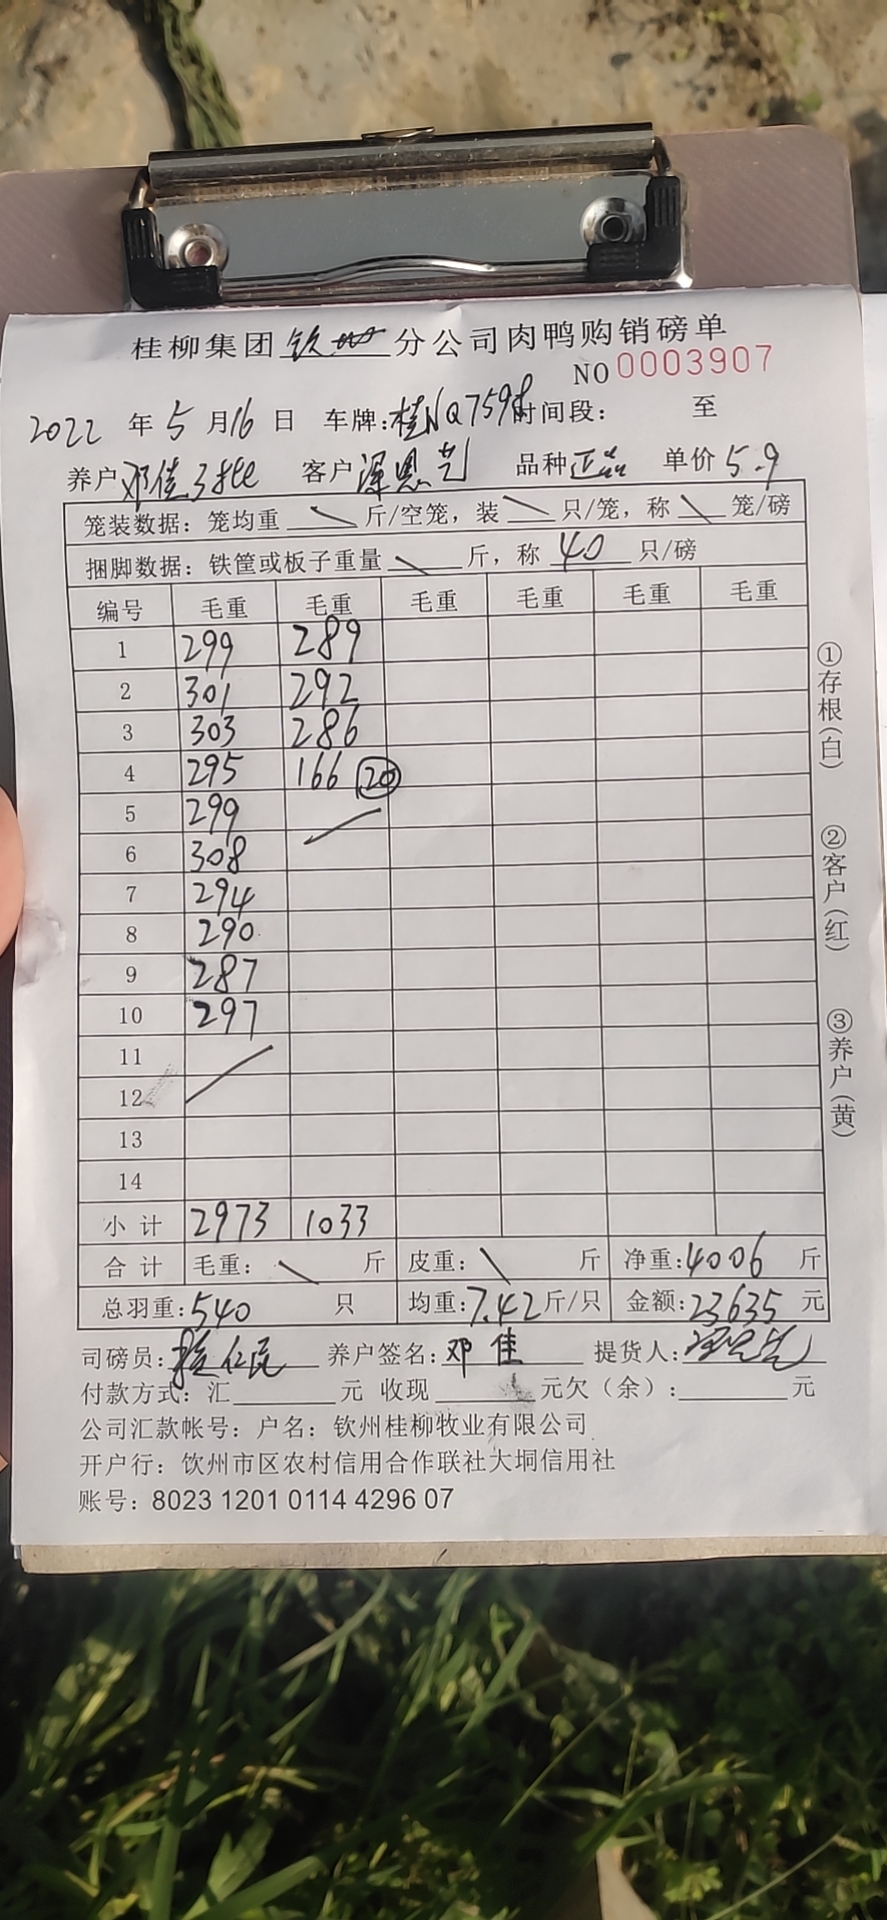 桂柳集团 钦州 分公司肉鸭购销磅单
NO 0003907
2022 年 5 月 16 日 车牌: 时间段: 至
养户 邓佳3批 客户 品种 正品 单价 5.9
笼装数据: 笼均重 \ 斤/空笼, 装 \ 只/笼, 称 \ 笼/磅
捆脚数据: 铁筐或板子重量 \ 斤, 称 40 只/磅
编号 毛重 毛重 毛重 毛重 毛重 毛重
1 299 289
2 301 292
3 303 286
4 295 166 20
5 299
6 308
7 294
8 290
9 287
10 297
11
12
13
14
小计 2973 1033
合计 毛重: \ 斤 皮重: \ 斤 净重: 4006 斤
总羽重: 540 只 均重: 7.42 斤/只 金额: 23635 元
司磅员: 养户签名: 邓佳 提货人:
付款方式: 汇 元 收现 元欠(余): 元
公司汇款帐号: 户名: 钦州桂柳牧业有限公司
开户行: 钦州市区农村信用合作联社大垌信用社
账号: 8023 1201 0114 4296 07
①存根(白)
②客户(红)
③养户(黄)